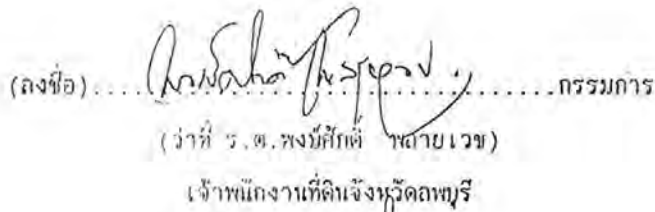 (ลงชื่อ)....................................กรรมการ
(ว่าที่ ร.ต.พงษ์ศักดิ์ พลายเวช)
เจ้าพนักงานที่ดินจังหวัดลพบุรี